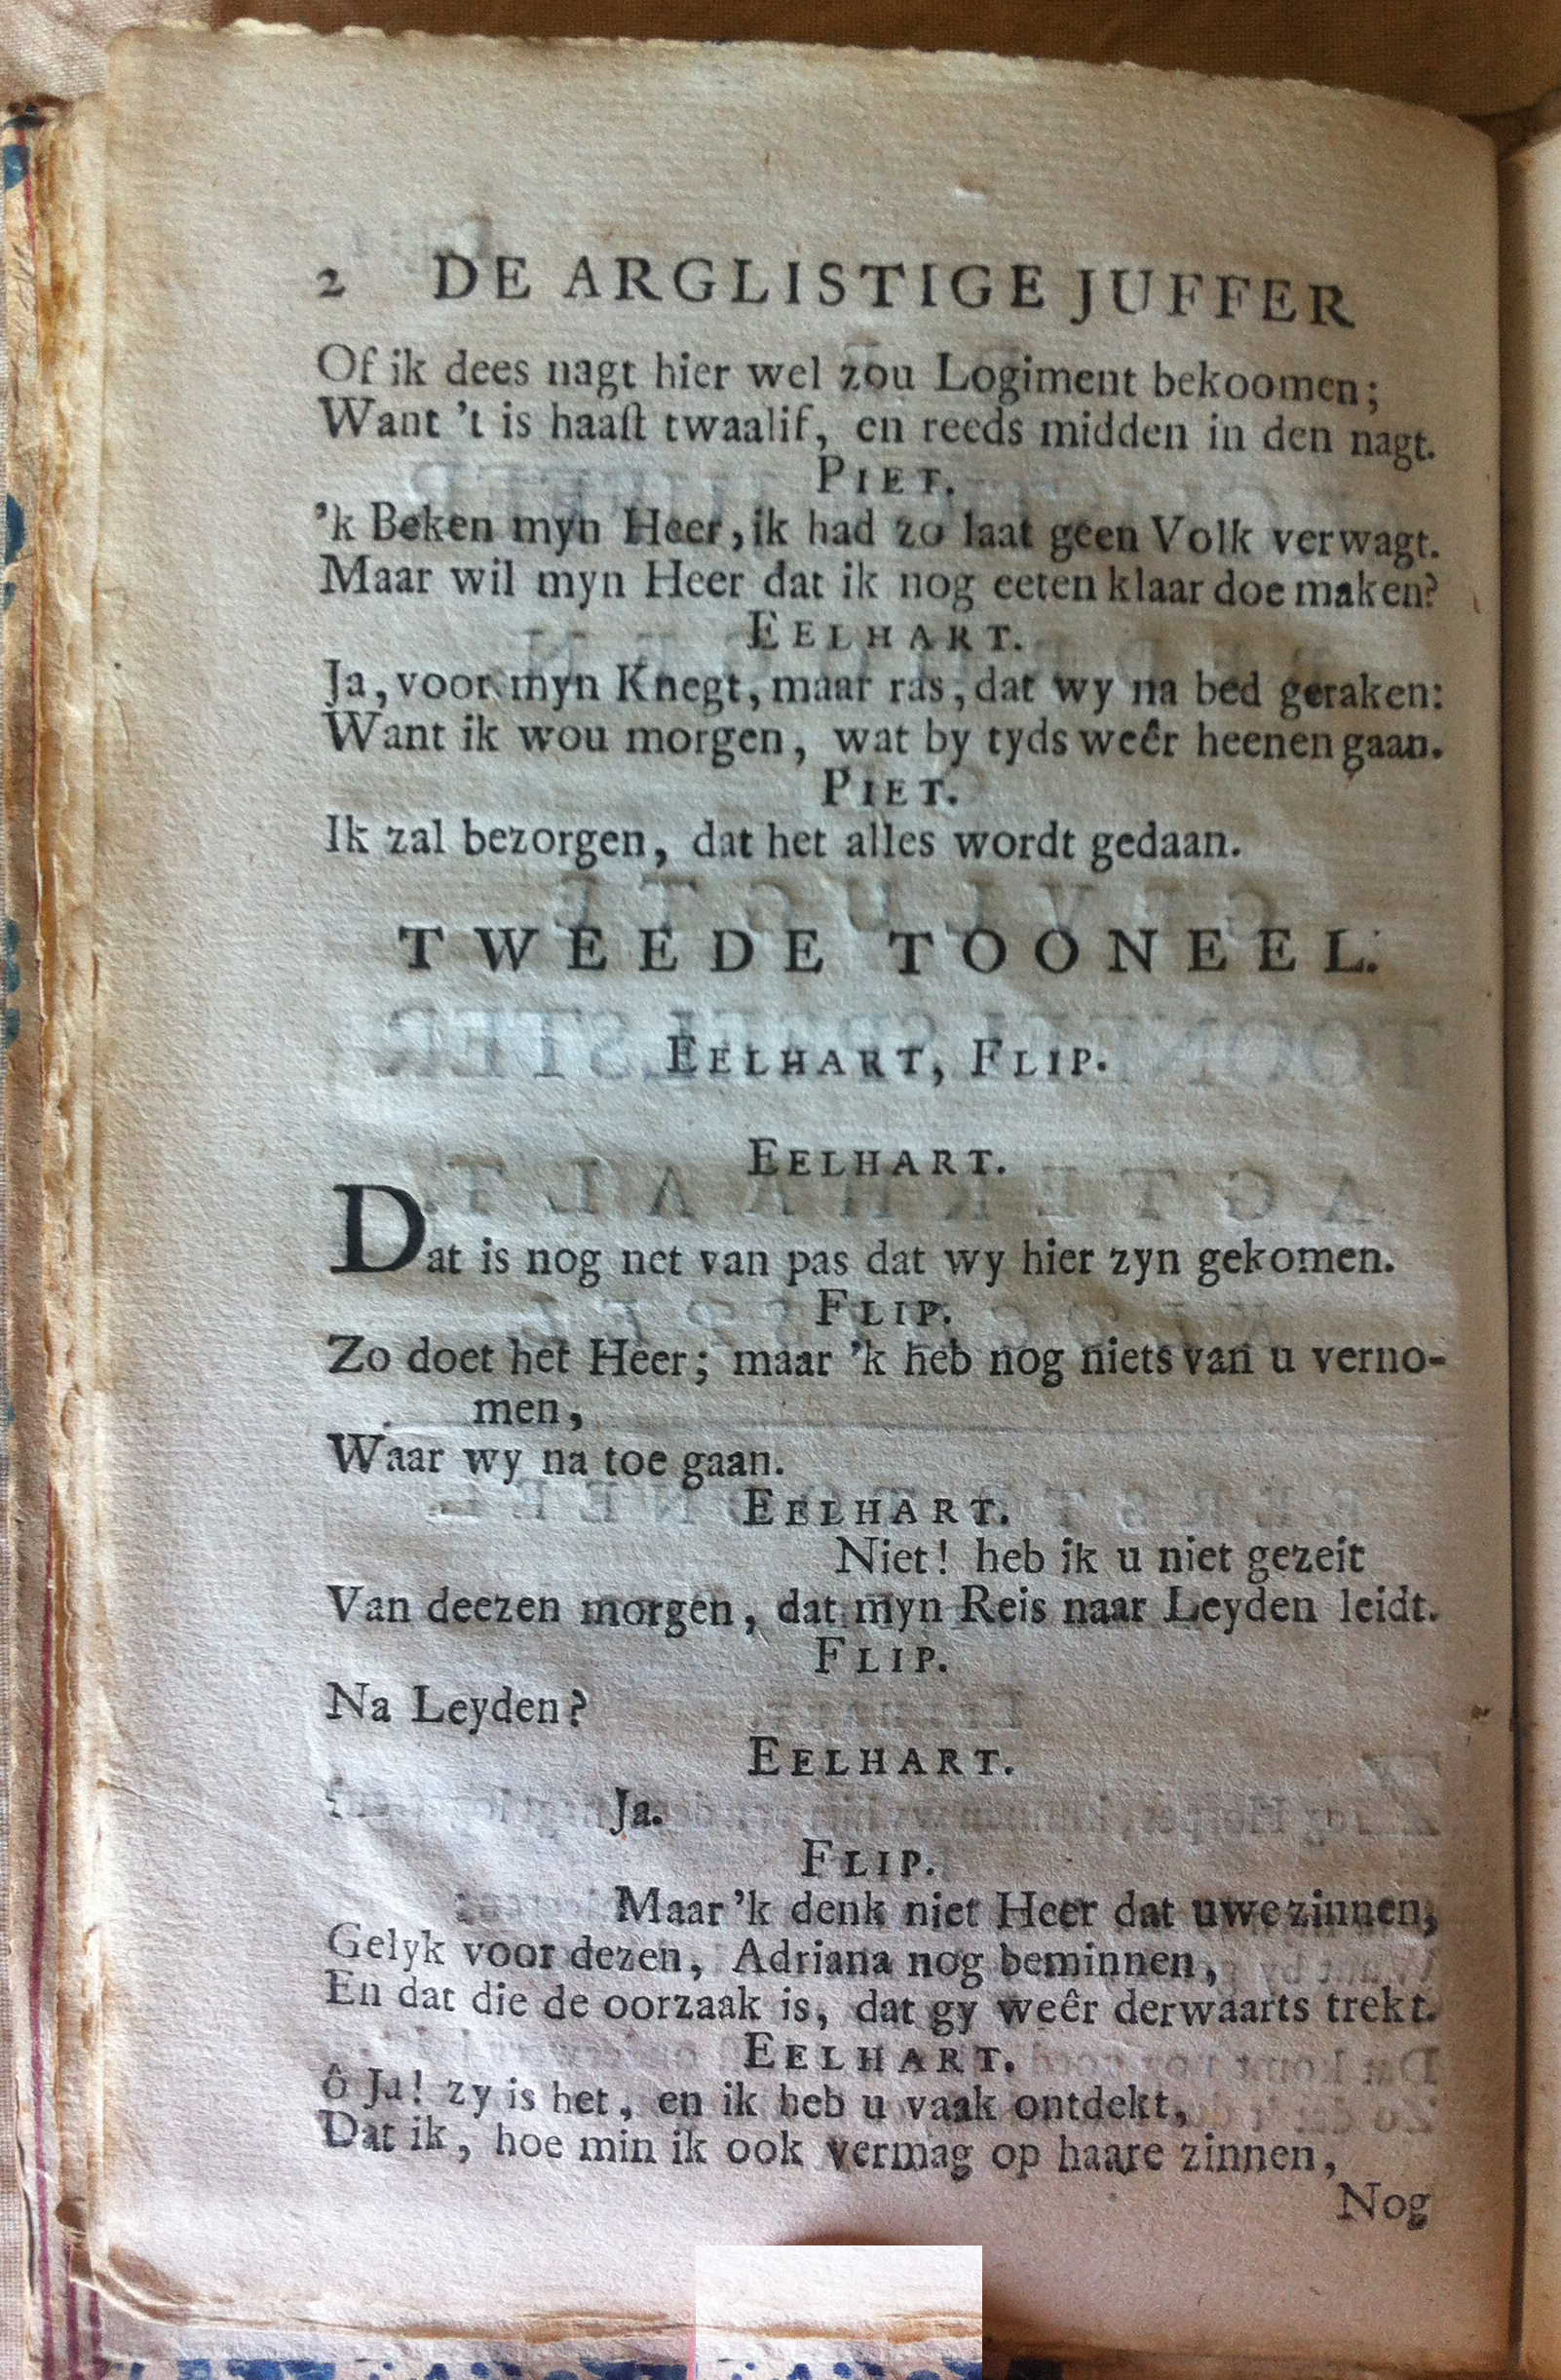 2 DE ARGLISTIGE JUFFER
Of ik dees nagt hier wel zou Logiment bekoomen;
Want 't is haaſt twaalif, en reeds midden in den nagt.
PIET.
'k Beken myn Heer, ik had zo laat geen Volk verwagt.
Maar wil myn Heer dat ik nog eeten klaar doe maken?
EELHART.
Ja, voor myn Knegt, maar ras, dat wy na bed geraken:
Want ik wou morgen, wat by tyds weêr heenen gaan.
PIET.
Ik zal bezorgen, dat het alles wordt gedaan.
TWEEDE TOONEEL.
EELHART, FLIP.
EELHART.
Dat is nog net van pas dat wy hier zyn gekomen.
FLIP.
Zo doet het Heer; maar 'k heb nog niets van u verno-
men,
Waar wy na toe gaan.
EELHART.
Niet! heb ik u niet gezeit
Van deezen morgen, dat myn Reis naar Leyden leidt.
FLIP.
Na Leyden?
EELHART.
Ja.
FLIP.
Maar 'k denk niet Heer dat uwe zinnen,
Gelyk voor dezen, Adriana nog beminnen,
En dat die de oorzaak is, dat gy weêr derwaarts trekt.
EELHART.
ô Ja! zy is het, en ik heb u vaak ontdekt,
Dat ik, hoe min ik ook vermag op haare zinnen,
Nog